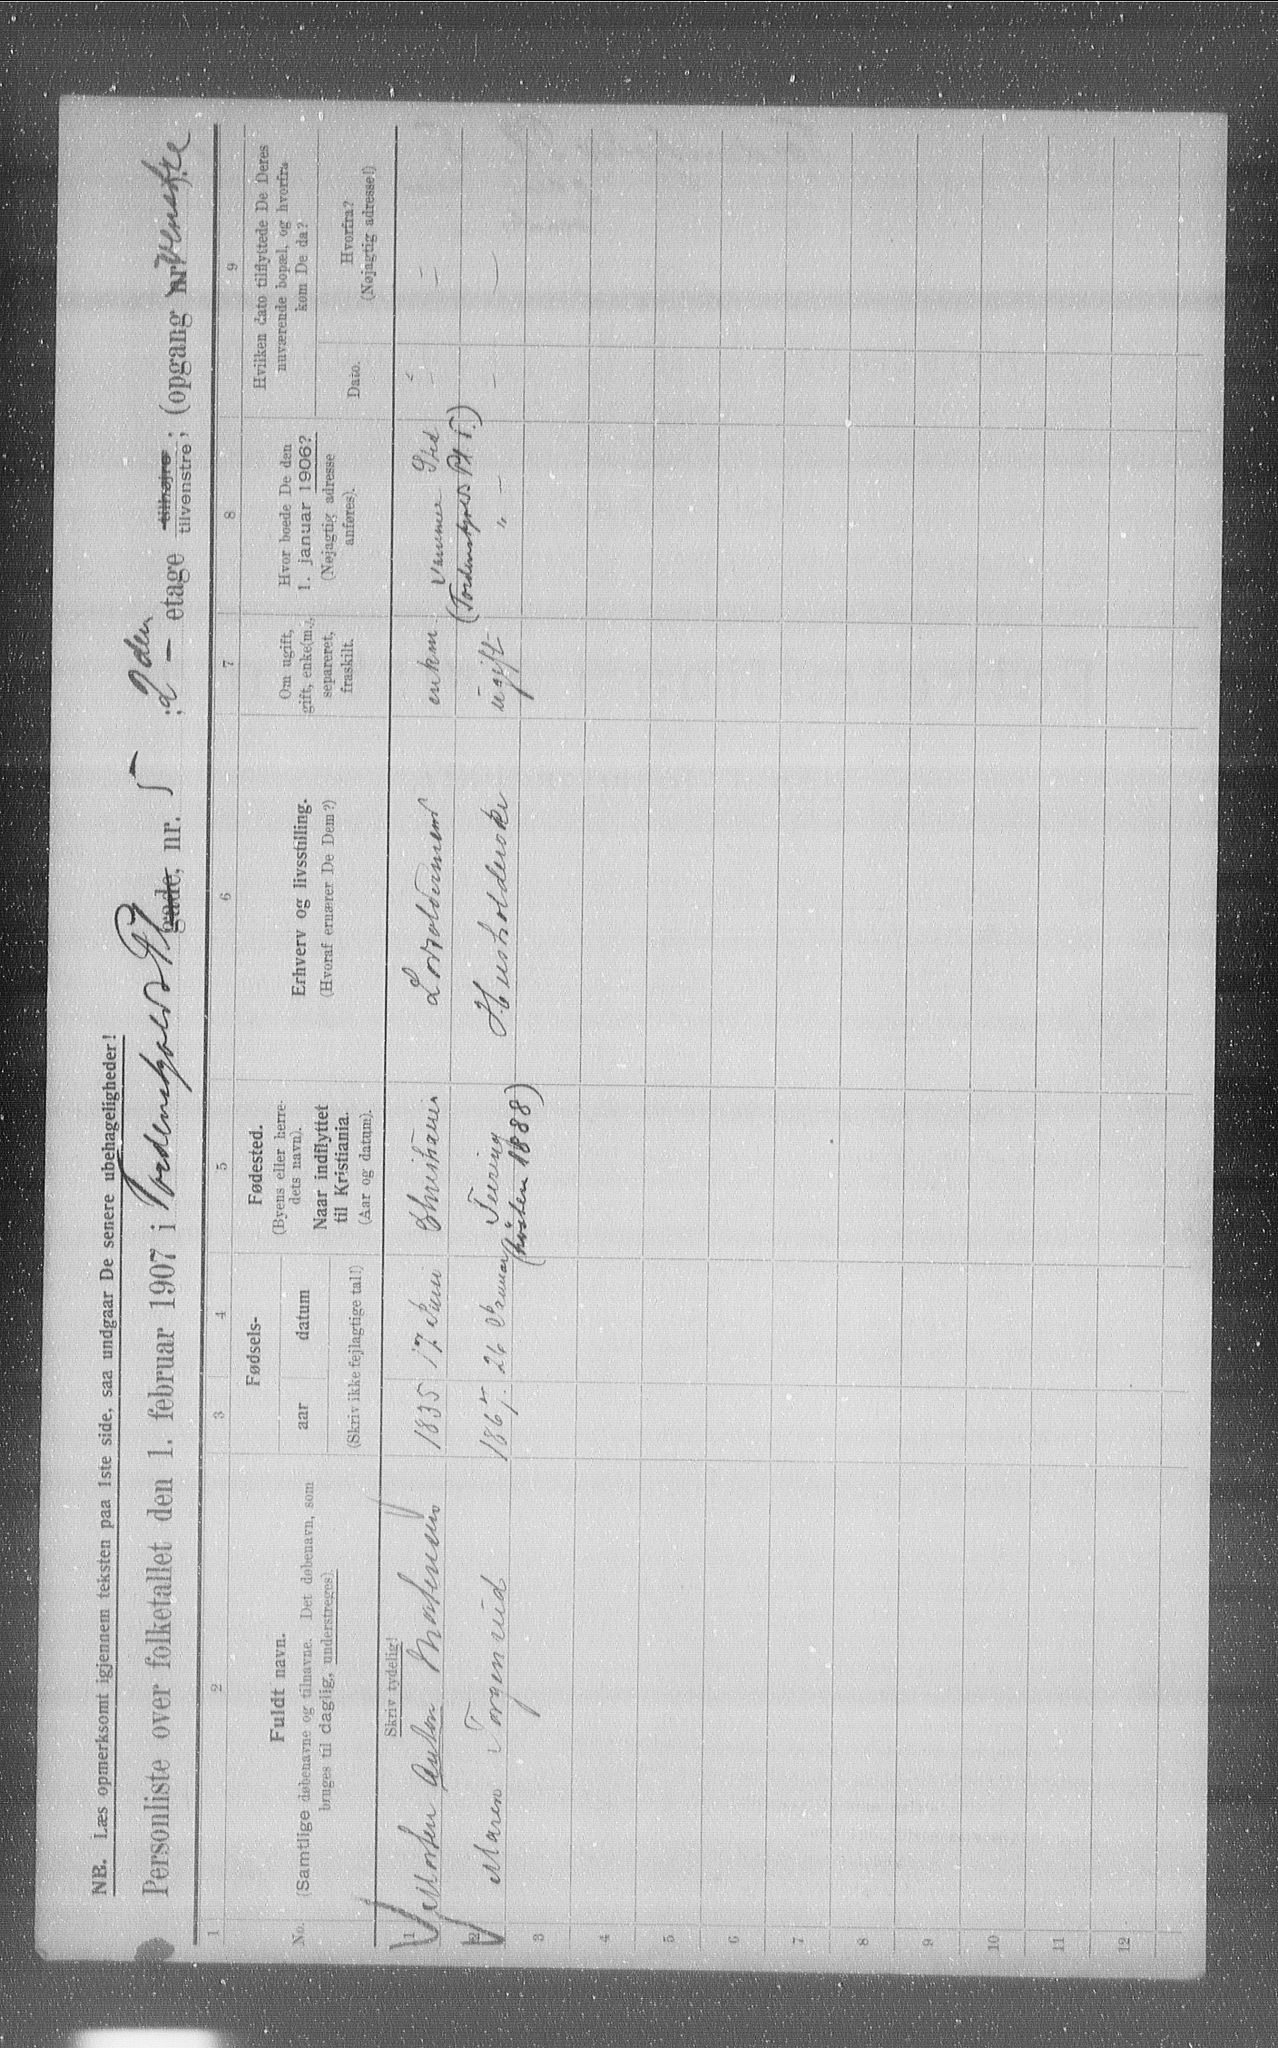 NB. Læs opmerksomt igjennem teksten paa 1ste side, saa undgaar De senere ubehageligheder!
Personliste over folketallet den 1. februar 1907 i Tordenskjolds Pl gade, nr. 5, 2den — etage tilhøjre tilvenstre; (opgang nr Venstre
1 2 3 4 5 6 7 8 9
No.
Fuldt navn.
(Samtlige døbenavne og tilnavne. Det døbenavn, som
bruges til daglig, understreges)
Fødsels-
aar datum
(Skriv ikke fejlagtige tal!)
Fødested.
(Byens eller herre-
dets navn).
Naar indflyttet
til Kristiania.
(Aar og datum).
Erhverv og livsstilling.
(Hvoraf ernærer De Dem?)
Om ugift,
gift, enke(m.),
separeret,
fraskilt.
Hvor boede De den
1. januar 1906?
(Nøjagtig adresse
anføres).
Hvilken dato tilflyttede De Deres
nuværende bopæl, og hvorfra
kom De da?
Dato.
Hvorfra?
(Nøjagtig adresse!)
Skriv tydelig!
1 Morten Anton Mortensen 1835 17 Juni Christiania enkem. samme Sted — —
(Tordenskjolds Pl 5.)
2 Maren Torgensrud 1865 26 Januar Husholderske ugift " — — —
(høsten 1888)
3
4
5
6
7
8
9
10
11
12